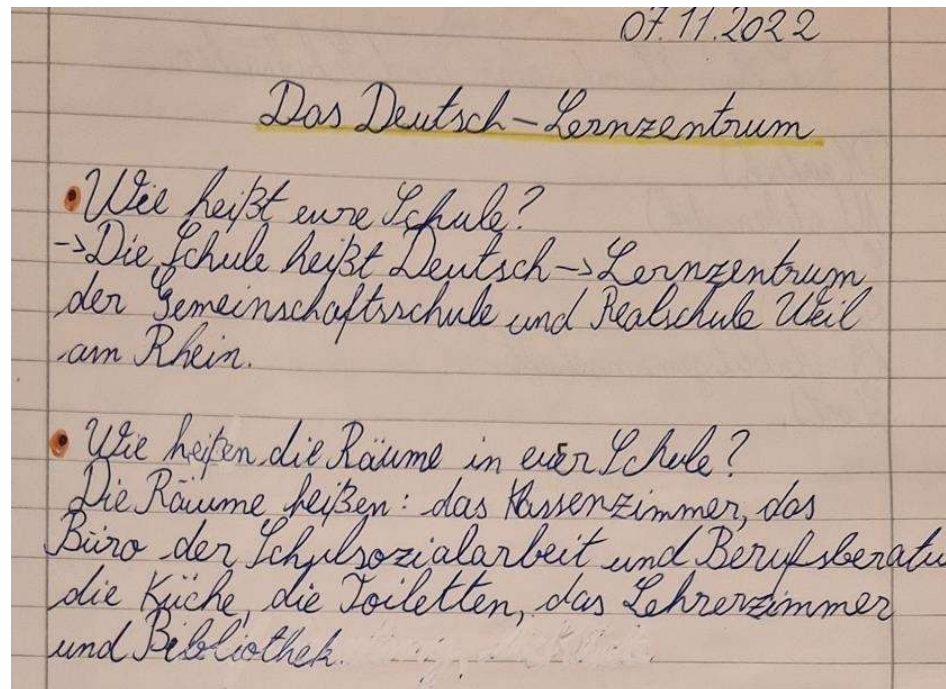 07.11.2022
Das Deutsch-Lernzentrum
• Wie heißt eure Schule?
-> Die Schule heißt Deutsch -> Lernzentrum
der Gemeinschaftsschule und Realschule Weil
am Rhein.
• Wie heißen die Räume in euer Schule?
Die Räume heißen: das Klassenzimmer, das
Büro der Schulsozialarbeit und Berufsberatu
die Küche, die Toiletten, das Lehrerzimmer
und Bibliothek.